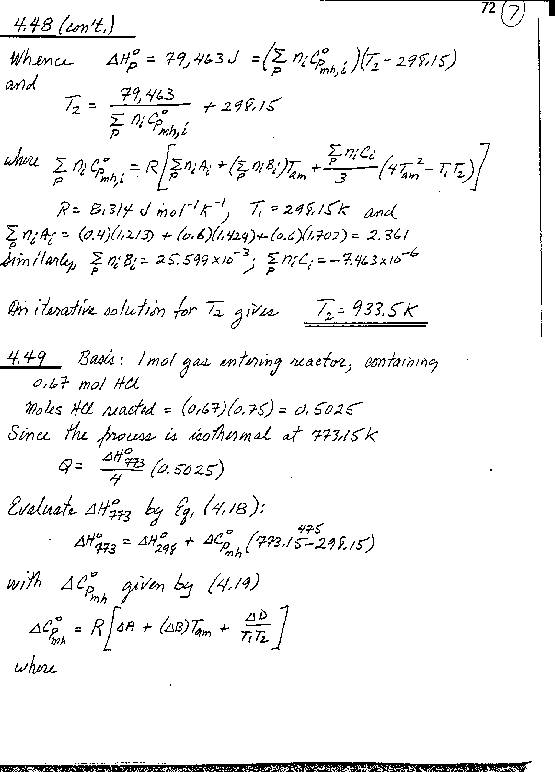 72 (7)
4.48 (con't.)
Whence ΔH°P = 79,463 J = (Σ_P n_i C°_Pmh,i)(T₂ - 298.15)
and
T₂ = 79,463 / Σ_P n_i C°_Pmh,i + 298.15
where Σ_P n_i C°_Pmh,i = R[Σ_P n_i A_i + (Σ_P n_i B_i)T_am + Σ_P n_i C_i / 3 (4T_am² - T₁T₂)]
R = 8.314 J mol⁻¹K⁻¹, T₁ = 298.15K and
Σ_P n_i A_i = (0.4)(1.213) + (0.6)(1.424) + (0.6)(1.702) = 2.361
Similarly, Σ_P n_i B_i = 25.599 x10⁻³; Σ_P n_i C_i = -7.463 x10⁻⁶
An iterative solution for T₂ gives T₂ = 933.5 K
4.49 Basis: 1 mol gas entering reactor, containing
0.67 mol HCl
Moles HCl reacted = (0.67)(0.75) = 0.5025
Since the process is isothermal at 773.15K
Q = ΔH°₇₇₃ / 4 (0.5025)
Evaluate ΔH°₇₇₃ by Eq. (4.18):
475
ΔH°₇₇₃ = ΔH°₂₉₈ + ΔC°_Pmh (773.15 - 298.15)
with ΔC°_Pmh given by (4.19)
ΔC°_Pmh = R[ΔA + (ΔB)T_am + ΔD / T₁T₂]
where